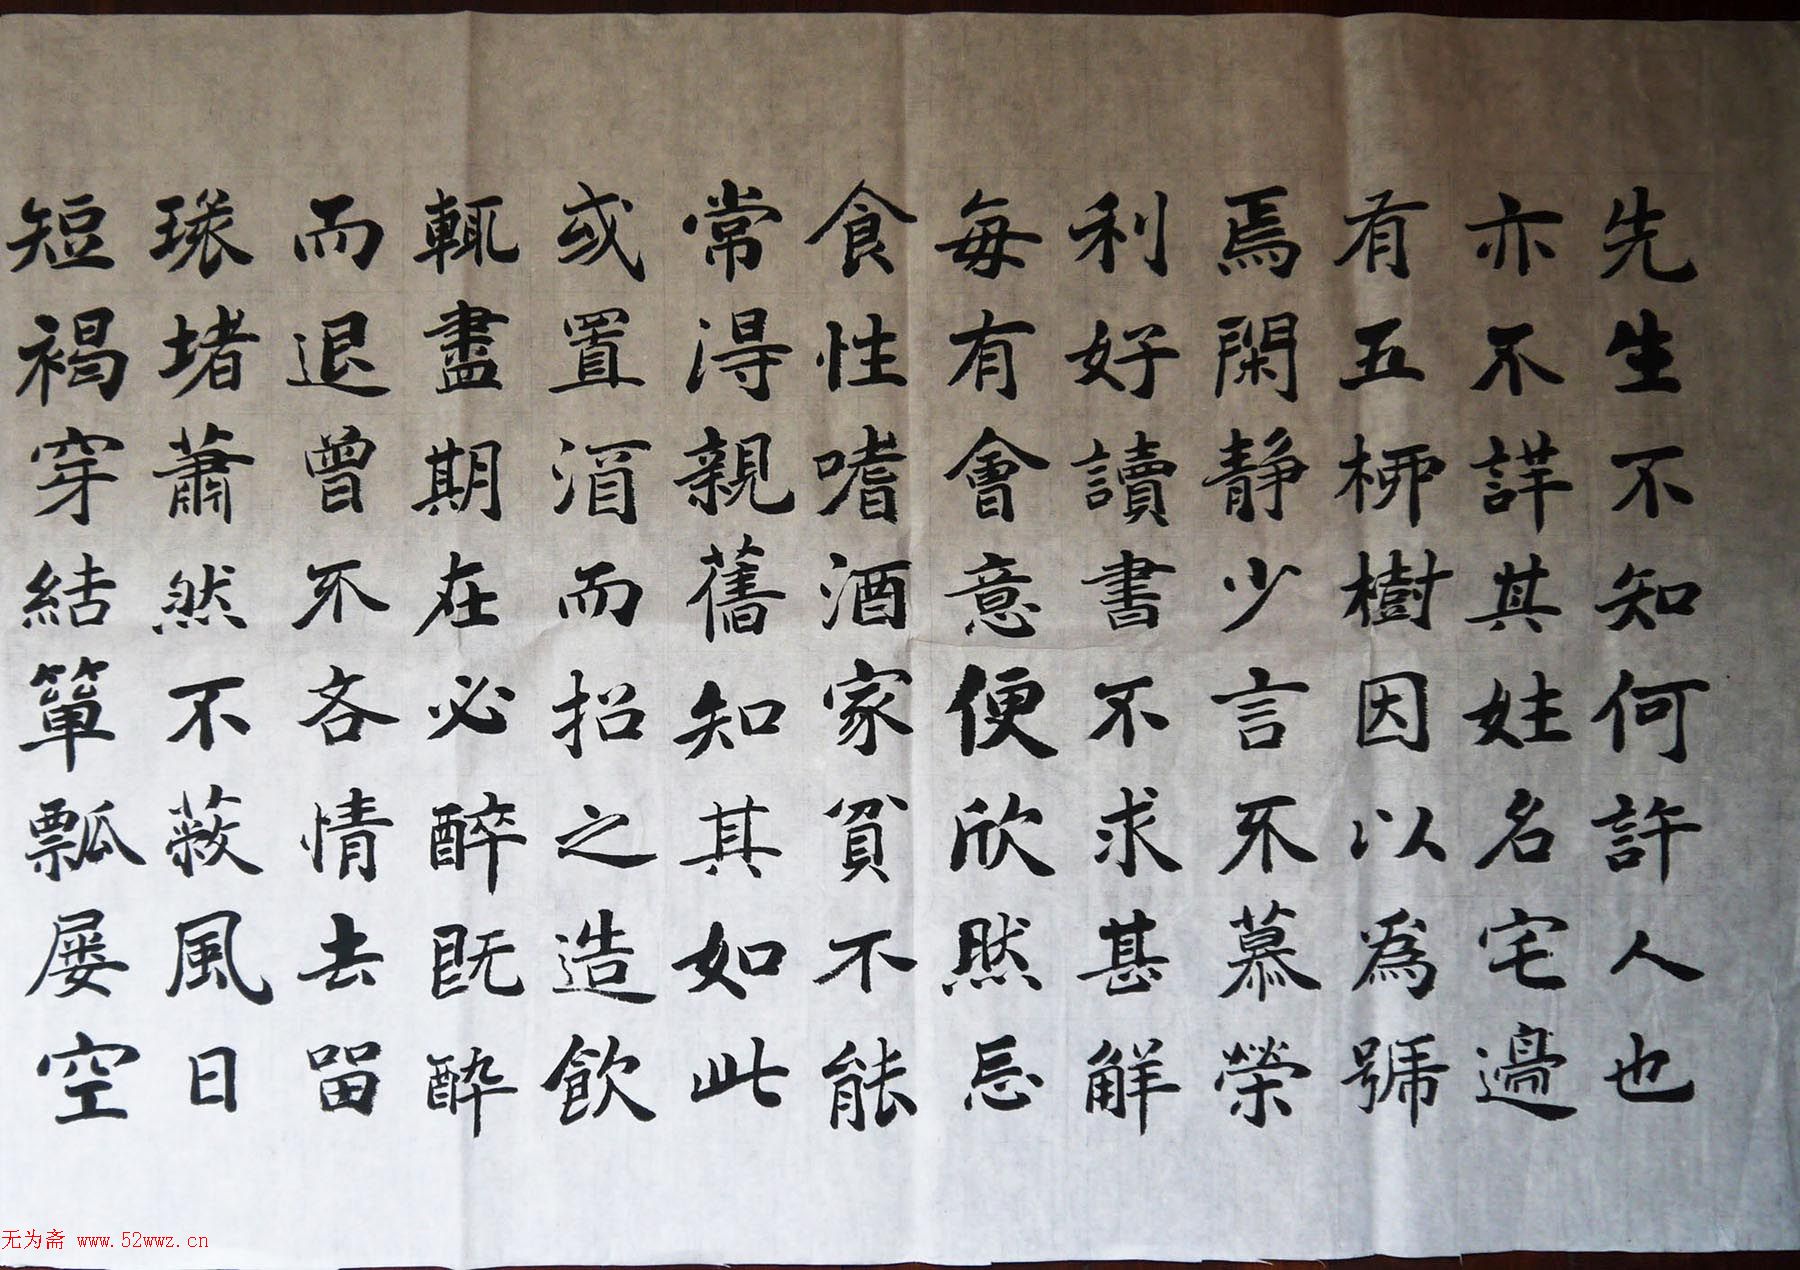 先生不知何許人也
亦不詳其姓名宅邊
有五柳樹因以為號
焉閑静少言不慕榮
利好讀書不求甚解
每有會意便欣然忘
食性嗜酒家貧不能
常得親舊知其如此
或置酒而招之造飲
輒盡期在必醉既醉
而退曾不吝情去留
環堵蕭然不蔽風日
短褐穿結簞瓢屢空
无为斋 www.52wwz.cn